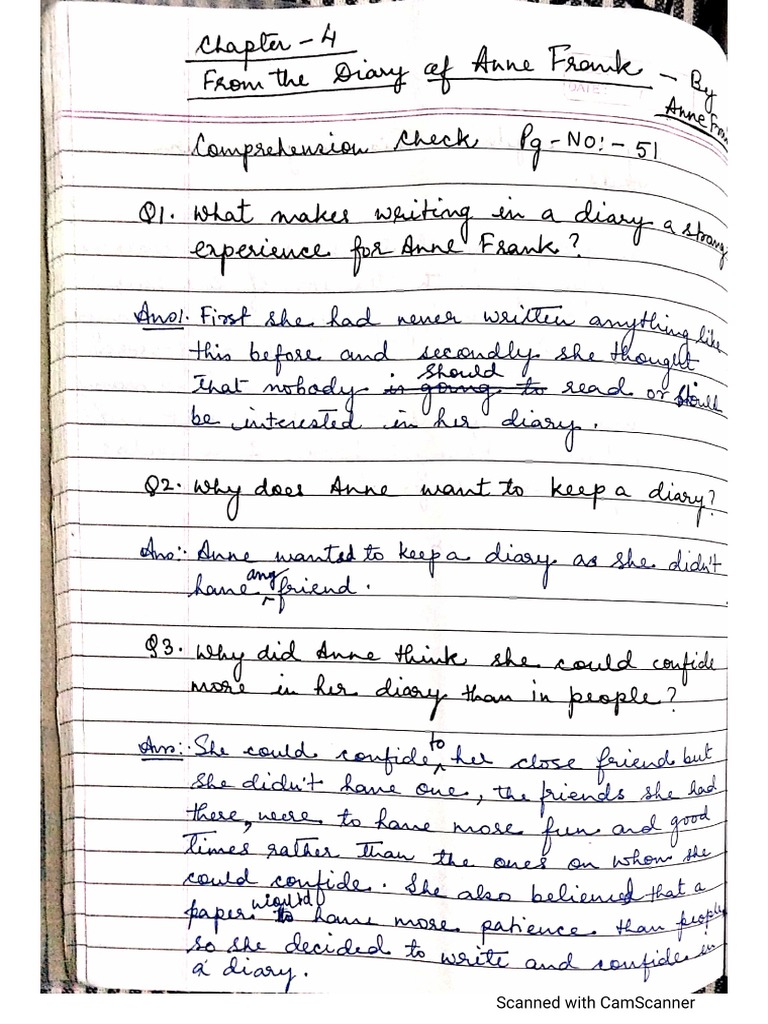 Chapter - 4
From the Diary of Anne Frank - By
Anne Fran
DATE:
Comprehension Check Pg-No:- 51
Q1. What makes writing in a diary a strang
experience for Anne Frank?
Ans1. First she had never written anything like
this before and secondly she thought
should
that nobody is going to read or should
be interested in her diary.
Q2. Why does Anne want to keep a diary?
Ans:- Anne wanted to keep a diary as she didn't
any
have friend.
Q3. Why did Anne think she could confide
more in her diary than in people?
Ans:- She could confide to her close friend but
she didn't have one, the friends she had
there, were to have more fun and good
times rather than the ones on whom she
could confide. She also believed that a
would
paper to have more patience than people
so she decided to write and confide in
a diary.
Scanned with CamScanner